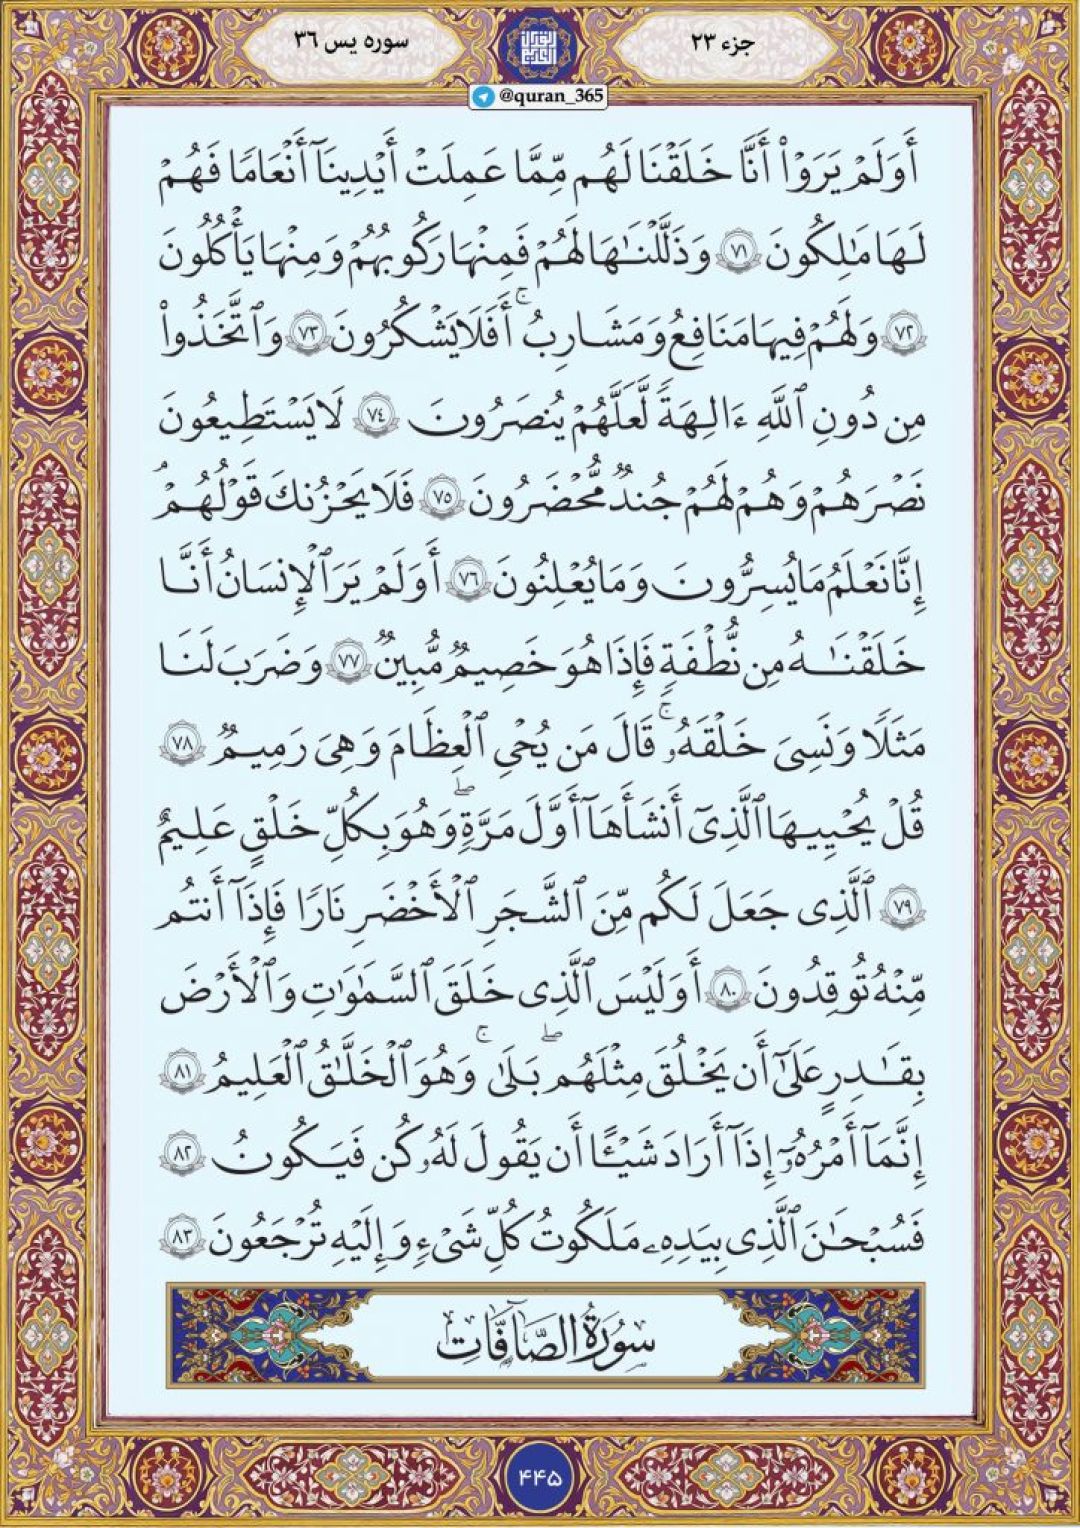 جزء ۲۳
سوره یس ۳۶
@quran_365
أَوَلَمْ يَرَوْا۟ أَنَّا خَلَقْنَا لَهُم مِّمَّا عَمِلَتْ أَيْدِينَآ أَنْعَامًا فَهُمْ
لَهَا مَٰلِكُونَ ﴿٧١﴾ وَذَلَّلْنَٰهَا لَهُمْ فَمِنْهَا رَكُوبُهُمْ وَمِنْهَا يَأْكُلُونَ
﴿٧٢﴾ وَلَهُمْ فِيهَا مَنَافِعُ وَمَشَارِبُ ۚ أَفَلَا يَشْكُرُونَ ﴿٧٣﴾ وَٱتَّخَذُوا۟
مِن دُونِ ٱللَّهِ ءَالِهَةً لَّعَلَّهُمْ يُنصَرُونَ ﴿٧٤﴾ لَا يَسْتَطِيعُونَ
نَصْرَهُمْ وَهُمْ لَهُمْ جُندٌ مُّحْضَرُونَ ﴿٧٥﴾ فَلَا يَحْزُنكَ قَوْلُهُمْ ۘ
إِنَّا نَعْلَمُ مَا يُسِرُّونَ وَمَا يُعْلِنُونَ ﴿٧٦﴾ أَوَلَمْ يَرَ ٱلْإِنسَانُ أَنَّا
خَلَقْنَٰهُ مِن نُّطْفَةٍ فَإِذَا هُوَ خَصِيمٌ مُّبِينٌ ﴿٧٧﴾ وَضَرَبَ لَنَا
مَثَلًا وَنَسِىَ خَلْقَهُۥ ۖ قَالَ مَن يُحْىِ ٱلْعِظَٰمَ وَهِىَ رَمِيمٌ ﴿٧٨﴾
قُلْ يُحْيِيهَا ٱلَّذِىٓ أَنشَأَهَآ أَوَّلَ مَرَّةٍ ۖ وَهُوَ بِكُلِّ خَلْقٍ عَلِيمٌ
﴿٧٩﴾ ٱلَّذِى جَعَلَ لَكُم مِّنَ ٱلشَّجَرِ ٱلْأَخْضَرِ نَارًا فَإِذَآ أَنتُم
مِّنْهُ تُوقِدُونَ ﴿٨٠﴾ أَوَلَيْسَ ٱلَّذِى خَلَقَ ٱلسَّمَٰوَٰتِ وَٱلْأَرْضَ
بِقَٰدِرٍ عَلَىٰٓ أَن يَخْلُقَ مِثْلَهُم ۖ بَلَىٰ ۚ وَهُوَ ٱلْخَلَّٰقُ ٱلْعَلِيمُ ﴿٨١﴾
إِنَّمَآ أَمْرُهُۥٓ إِذَآ أَرَادَ شَيْـًٔا أَن يَقُولَ لَهُۥ كُن فَيَكُونُ ﴿٨٢﴾
فَسُبْحَٰنَ ٱلَّذِى بِيَدِهِۦ مَلَكُوتُ كُلِّ شَىْءٍ وَإِلَيْهِ تُرْجَعُونَ ﴿٨٣﴾
سُورَةُ الصَّآفَّات
۴۴۵